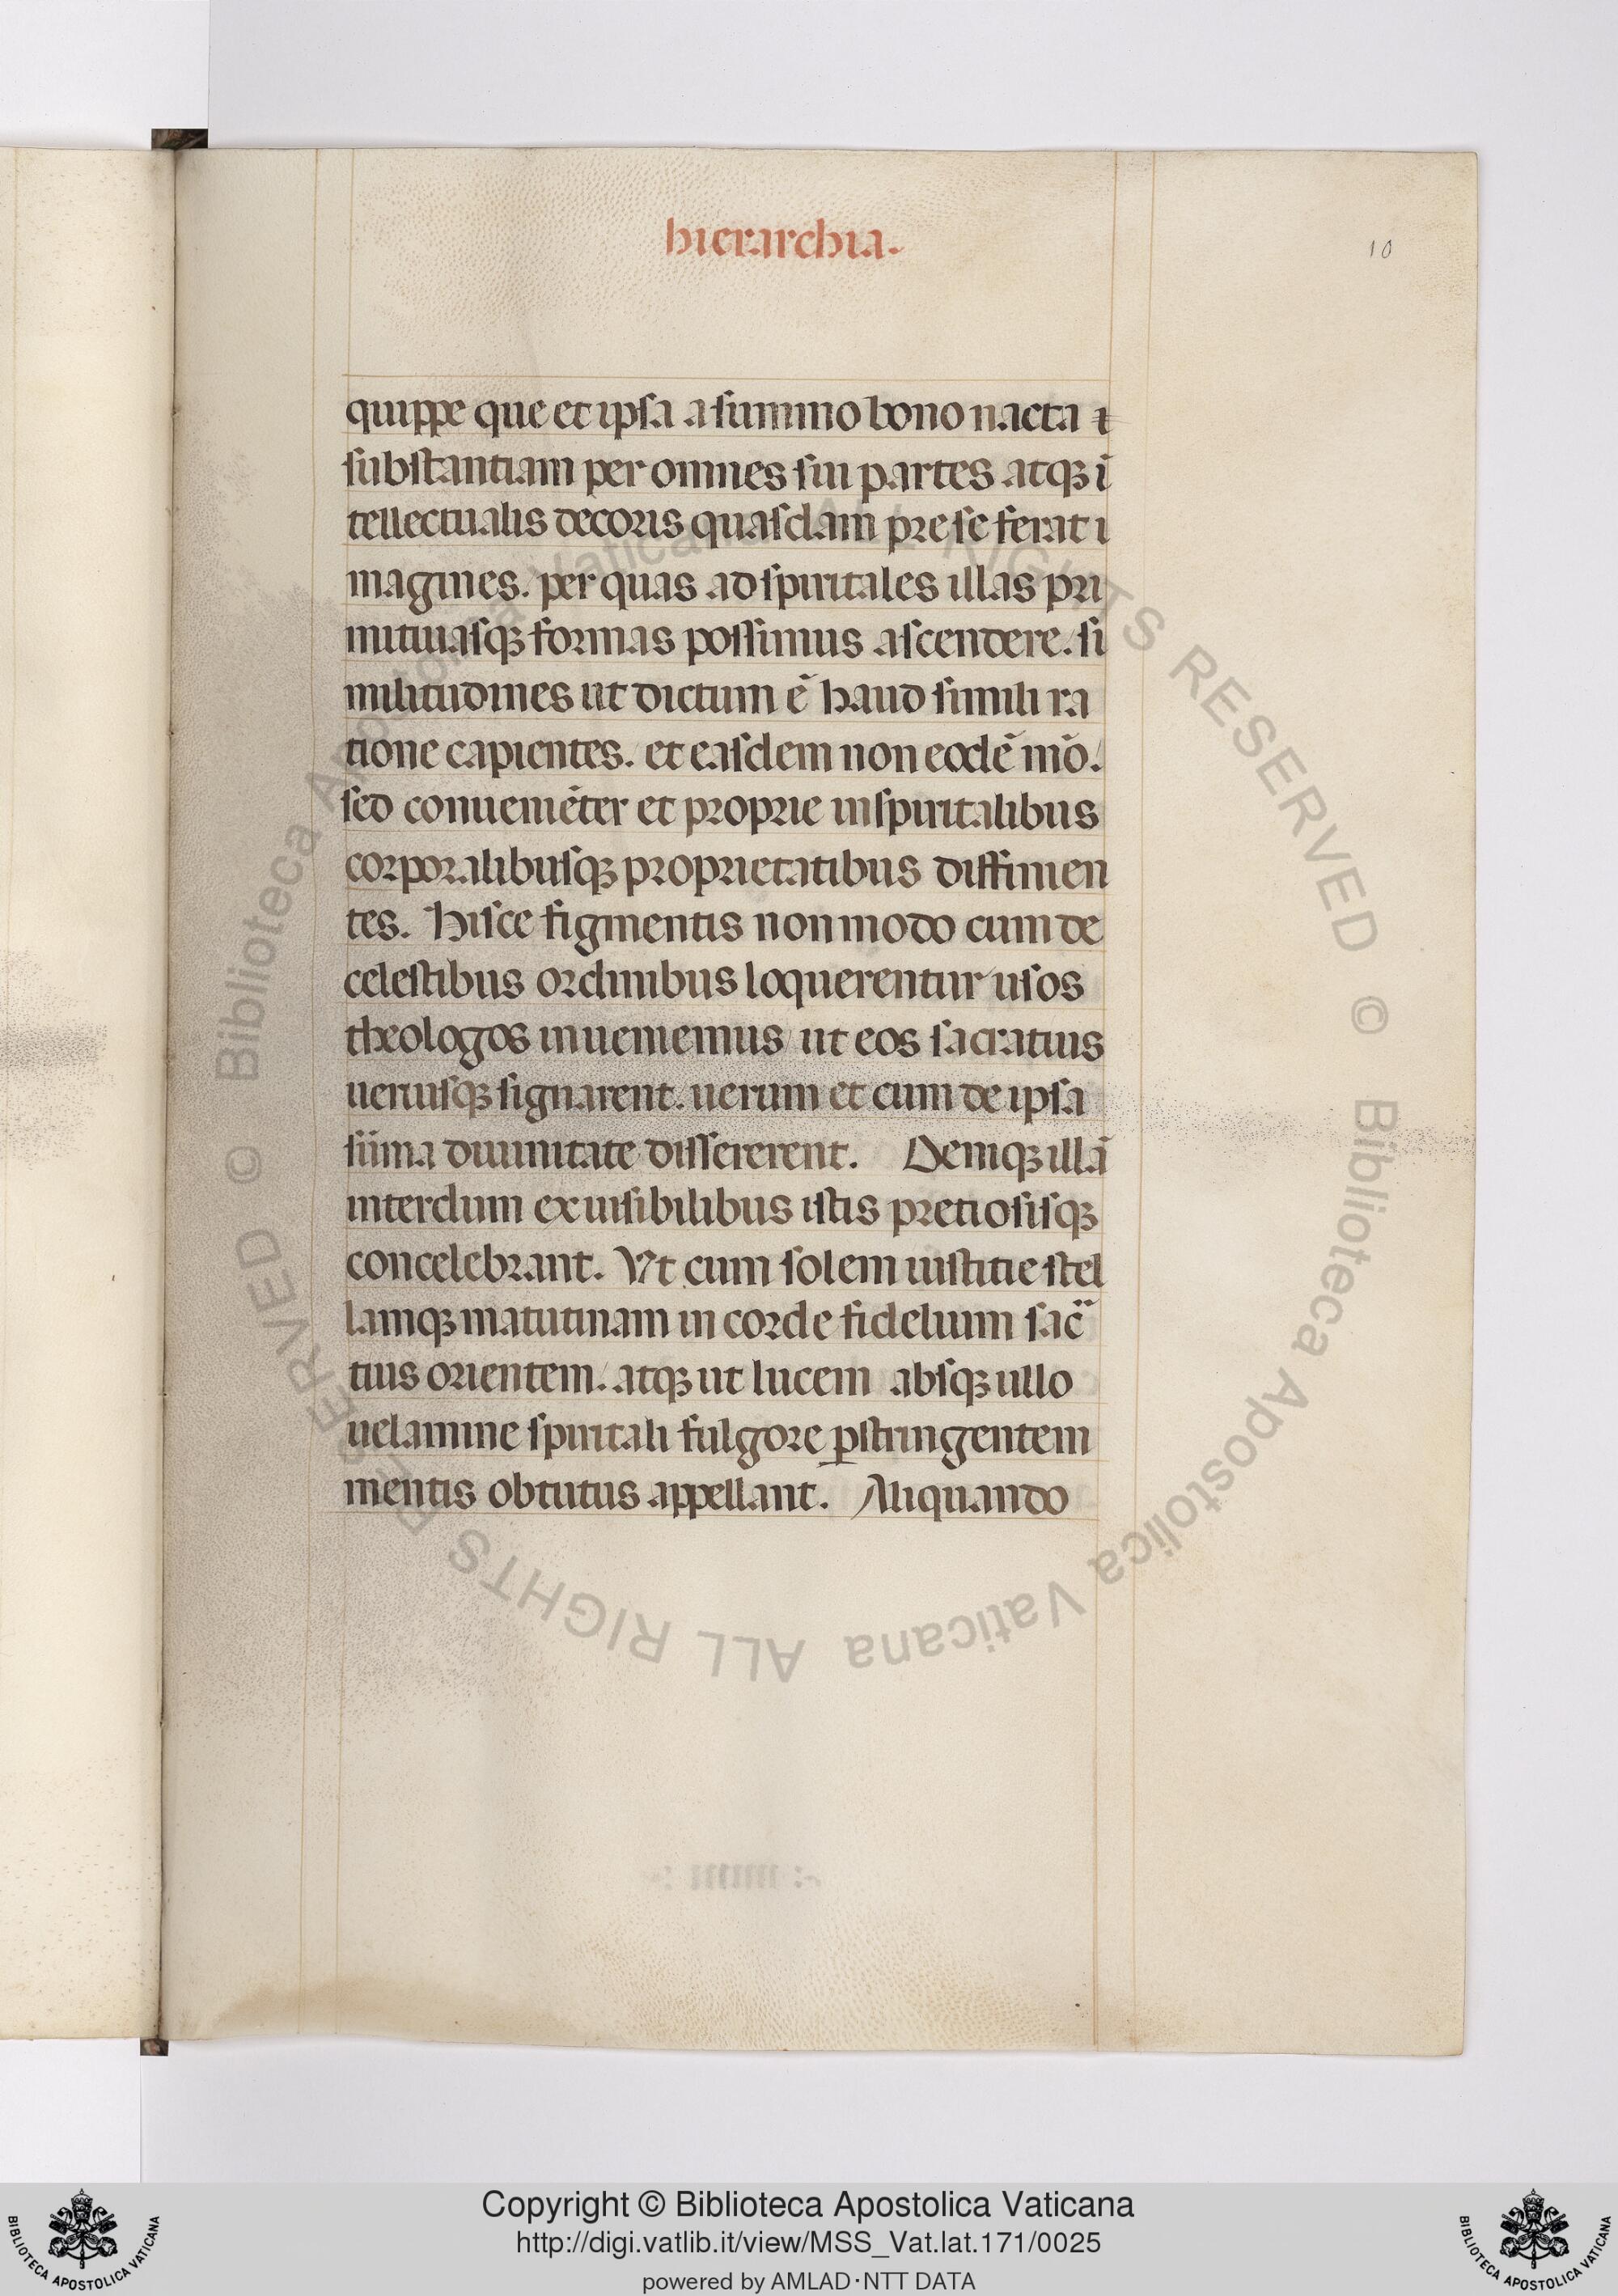 hierarchia.
10
quippe que et ipsa a summo bono nacta ⁊
substantiam per omnes sui partes atqꝫ ĩ
tellectualis decoris quasdam pre se ferat i
magines. per quas ad spiritales illas pri
mitiuasqꝫ formas possimus ascendere. si
militudines ut dictum ẽ haud simili ra
tione capientes. et easdem non eodẽ mõ.
sed conueniẽter et proprie in spiritalibus
corporalibusqꝫ proprietatibus diffinien
tes. Hisce figmentis non modo cum de
celestibus ordinibus loquerentur usos
theologos inueniemus ut eos sacratius
ueriusqꝫ signarent. uerum et cum de ipsa
sũma diuinitate dissererent. Deniqꝫ illã
interdum ex uisibilibus istis pretiosisqꝫ
concelebrant. Vt cum solem iustitie stel
lamqꝫ matutinam in corde fidelium sac̃
tius orientem. atqꝫ ut lucem absqꝫ ullo
uelamine spiritali fulgore ꝑstringentem
mentis obtutus appellant. Aliquando
© Biblioteca Apostolica Vaticana ALL RIGHTS RESERVED © Biblioteca Apostolica Vaticana ALL RIGHTS RESERVED
Copyright © Biblioteca Apostolica Vaticana
http://digi.vatlib.it/view/MSS_Vat.lat.171/0025
powered by AMLAD·NTT DATA
BIBLIOTECA APOSTOLICA VATICANA
BIBLIOTECA APOSTOLICA VATICANA